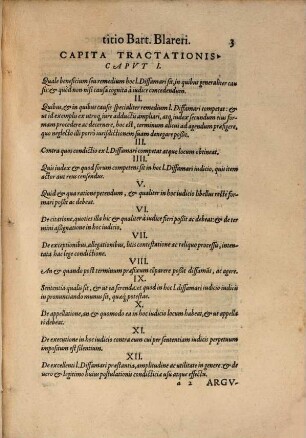 titio Bart. Blareri. 3
CAPITA TRACTATIONIS.
CAPVT I.
Quale beneficium seu remedium hoc l. Diffamari sit, in quibus generaliter cau
sis: & quod non nisi causa cognita à iudice concedendum.
II.
Quibus, & in quibus causis specialiter remedium l. Diffamari competat: & ut
ut id exemplis ex utroq; iure adductis ampliari, atq; iudex secundum eius for-
mam procedere ac decernere, hoc est, terminum alicui ad agendum præfigere,
quo neglecto illi porrò iurisdictionem suam denegare possit.
III.
Contra quos condictio ex l. Diffamari competat atque locum obtineat.
IIII.
Quis iudex & quod forum competens sit in hoc l. Diffamari iudicio, quis item
actor aut reus censendus.
V.
Quid & qua ratione petendum, & qualiter in hoc iudicio libellus rectè for-
mari possit ac debeat.
VI.
De citatione, quoties illa hîc & qualiter à iudice fieri possit ac debeat: & de ter
mini assignatione in hoc iudicio.
VII.
De exceptionibus, allegationibus, litis contestatione ac reliquo processu, inten-
tata hac lege condictione.
VIII.
An & quando post terminum præfixum cõparere possit diffamãs, ac agere.
IX.
Sententia qualis sit, & ut ea ferenda: et quod in hoc l. diffamari iudicio iudicis
in pronunciando munus sit, quæq; potestas.
X.
De appellatione, an & quomodo ea in hoc iudicio locum habeat, & ut appella
ri debeat.
XI.
De executione in hoc iudicio contra eum cui per sententiam iudicis perpetuum
impositum est silentium.
XII.
De excellenti l. Diffamari præstantia, amplitudine ac utilitate in genere: & de
vero & legitimo huius postulationis condicticia usu atque effectu.
a 2 ARGV-